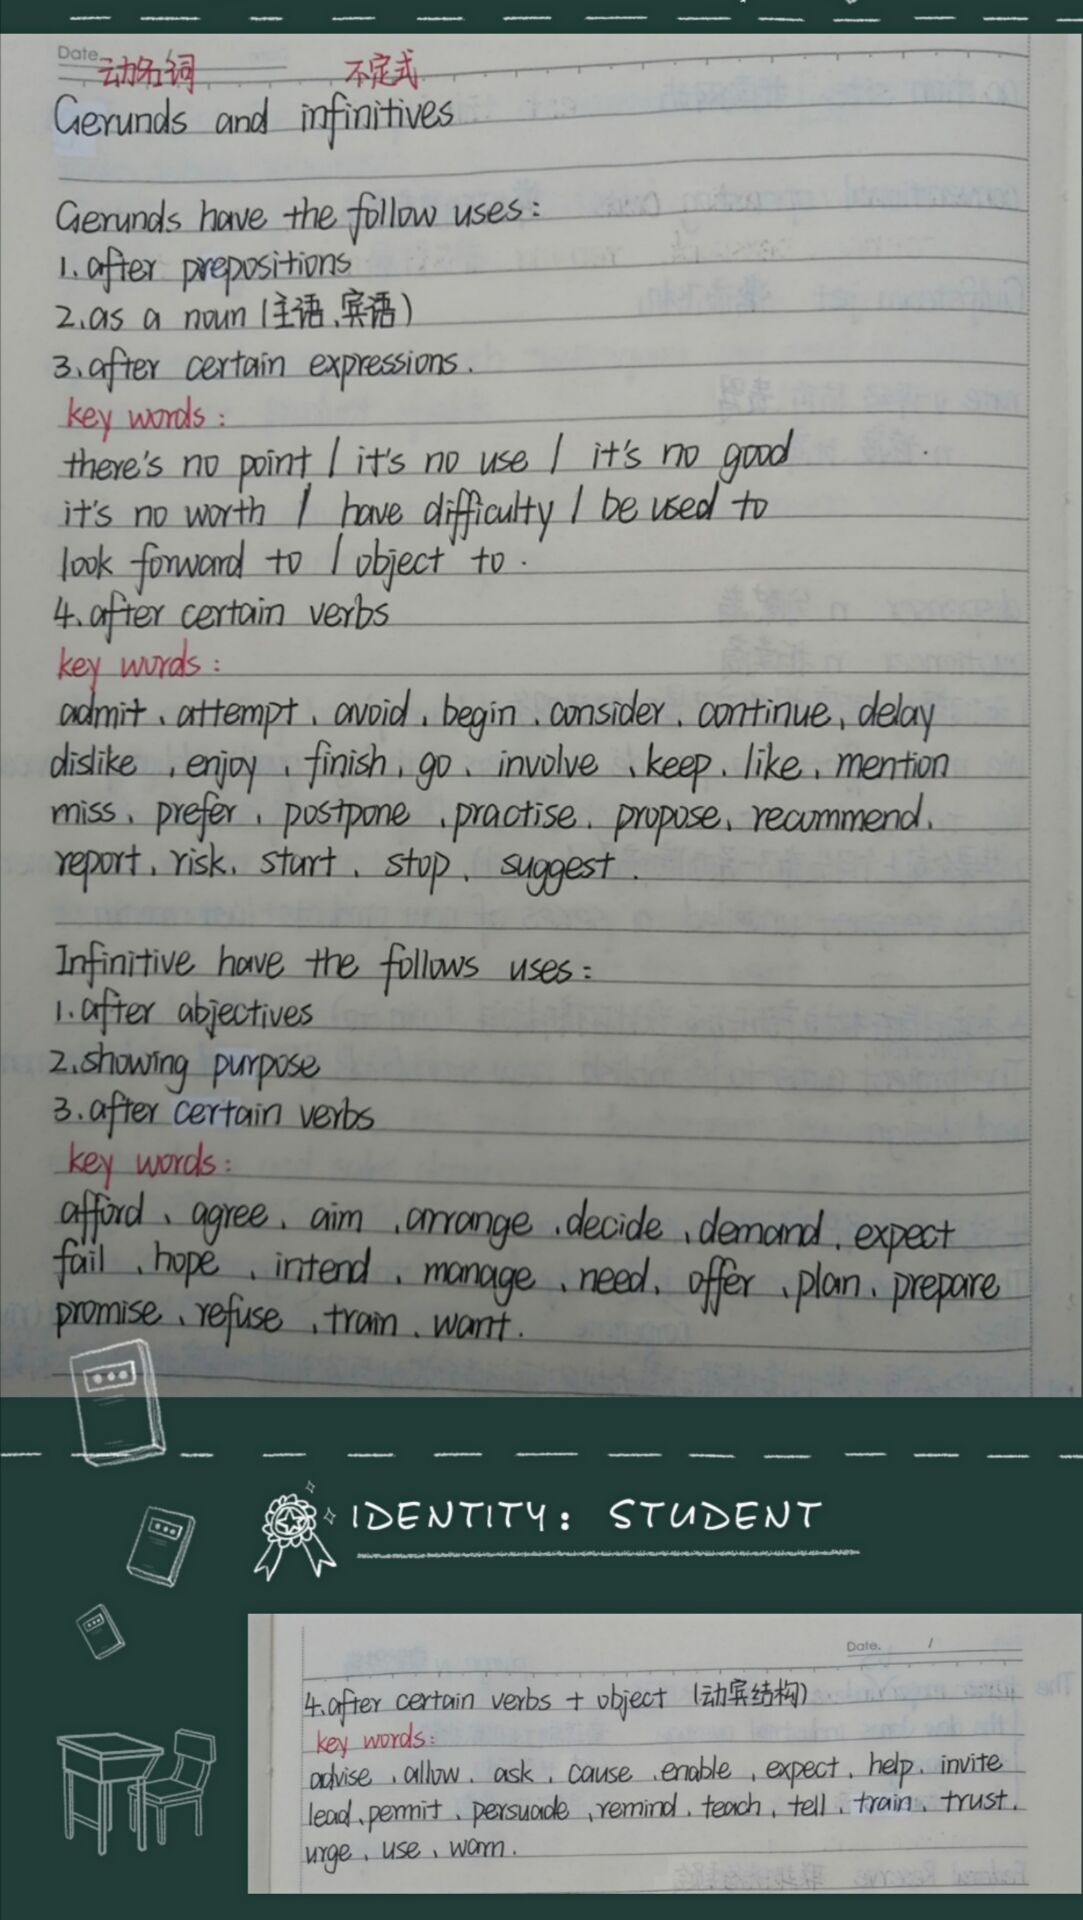 Date.
动名词 不定式
Gerunds and infinitives
Gerunds have the follow uses:
1.after prepositions
2.as a noun (主语、宾语)
3.after certain expressions.
key words:
there's no point / it's no use / it's no good
it's no worth / have difficulty / be used to
look forward to / object to.
4.after certain verbs
key words:
admit、attempt、avoid、begin、consider、continue、delay
dislike、enjoy、finish、go、involve、keep、like、mention
miss、prefer、postpone、practise、propose、recommend、
report、risk、start、stop、suggest.
Infinitive have the follows uses:
1.after abjectives
2.showing purpose
3.after certain verbs
key words:
afford、agree、aim、arrange、decide、demand、expect
fail、hope、intend、manage、need、offer、plan、prepare
promise、refuse、train、want.
IDENTITY: STUDENT
Date. /
4.after certain verbs + object (动宾结构)
key words:
advise、allow、ask、cause、enable、expect、help、invite
lead、permit、persuade、remind、teach、tell、train、trust、
urge、use、warn.